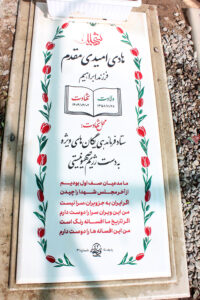 هادی امیدی مقدم
فرزند ابراهیم
ولادت
شهادت
محل شهادت:
ستاد فرماندهی یگان های ویژه
به دست رژیم صهیونیستی
ما مدعیان صف اول بودیم
از آخر مجلس شهدا را چیدند
اگر ایران به جز ویران سرا نیست
من این ویران سرا را دوست دارم
اگر تاریخ ما افسانه رنگ است
من این افسانه ها را دوست دارم